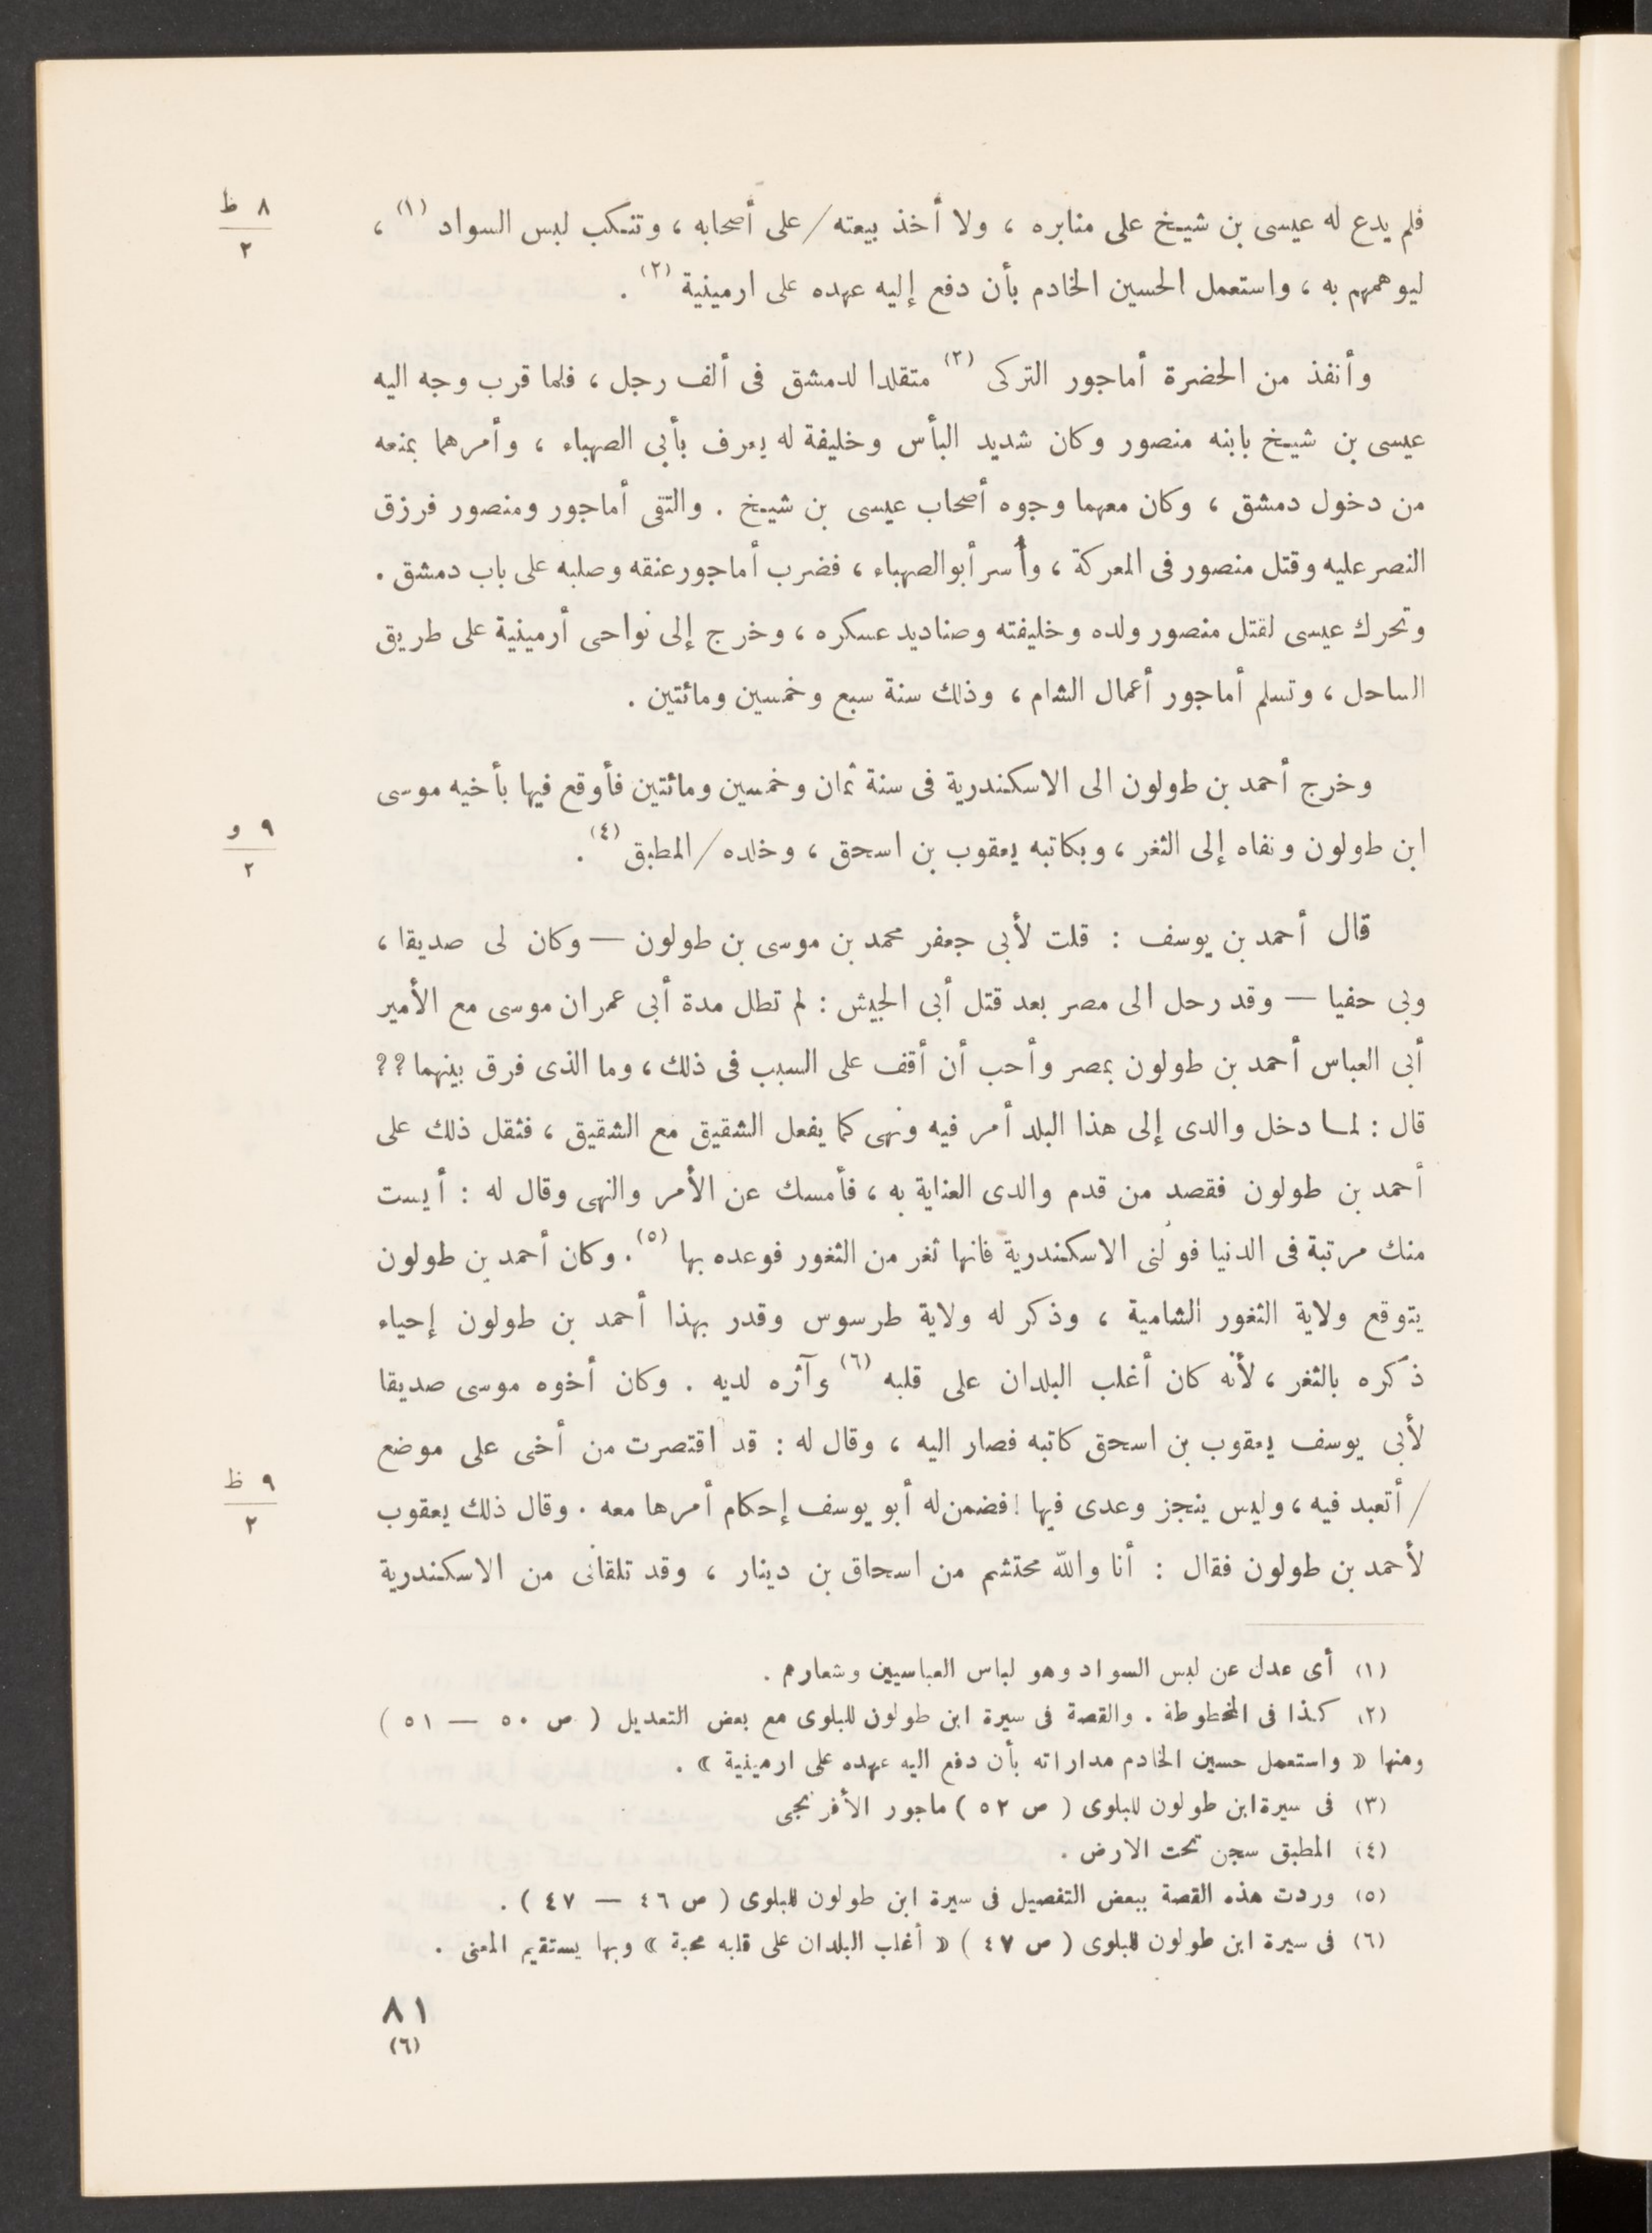 ٨ ظ
٢
فلم يدع له عيسى بن شيخ على منابره ، ولا أخذ بيعته / على أصحابه ، وتنكب لبس السواد (١) ،
ليوهمهم به ، واستعمل الحسين الخادم بأن دفع إليه عهده على ارمينية (٢) .
وأنفذ من الحضرة أماجور التركى (٣) متقلدا لدمشق فى ألف رجل ، فلما قرب وجه اليه
عيسى بن شيخ بابنه منصور وكان شديد البأس وخليفة له يعرف بأبى الصهباء ، وأمرهما بمنعه
من دخول دمشق ، وكان معهما وجوه أصحاب عيسى بن شيخ . والتقى أماجور ومنصور فرزق
النصر عليه وقتل منصور فى المعركة ، وأُسر أبو الصهباء ، فضرب أماجور عنقه وصلبه على باب دمشق .
وتحرك عيسى لقتل منصور ولده وخليفته وصناديد عسكره ، وخرج إلى نواحى أرمينية على طريق
الساحل ، وتسلم أماجور أعمال الشام ، وذلك سنة سبع وخمسين ومائتين .
وخرج أحمد بن طولون الى الاسكندرية فى سنة ثمان وخمسين ومائتين فأوقع فيها بأخيه موسى
٩ و
٢
ابن طولون ونفاه إلى الثغر ، وبكاتبه يعقوب بن اسحق ، وخلده / المطبق (٤) .
قال أحمد بن يوسف : قلت لأبى جعفر محمد بن موسى بن طولون — وكان لى صديقا ،
وبى حفيا — وقد رحل الى مصر بعد قتل أبى الجيش : لم تطل مدة أبى عمران موسى مع الأمير
أبى العباس أحمد بن طولون بمصر وأحب أن أقف على السبب فى ذلك ، وما الذى فرق بينهما ؟؟
قال : لمـا دخل والدى إلى هذا البلد أمر فيه ونهى كما يفعل الشقيق مع الشقيق ، فثقل ذلك على
أحمد بن طولون فقصد من قدم والدى العناية به ، فأمسك عن الأمر والنهى وقال له : أيست
منك مرتبة فى الدنيا فولنى الاسكندرية فانها ثغر من الثغور فوعده بها (٥) . وكان أحمد بن طولون
يتوقع ولاية الثغور الشامية ، وذكر له ولاية طرسوس وقدر بهذا أحمد بن طولون إحياء
ذكره بالثغر ، لأنه كان أغلب البلدان على قلبه (٦) وآثره لديه . وكان أخوه موسى صديقا
لأبى يوسف يعقوب بن اسحق كاتبه فصار اليه ، وقال له : قد اقتصرت من أخى على موضع
٩ ظ
٢
/ أتعبد فيه ، وليس ينجز وعدى فيها ! فضمن له أبو يوسف إحكام أمرها معه . وقال ذلك يعقوب
لأحمد بن طولون فقال : أنا والله محتشم من اسحاق بن دينار ، وقد تلقانى من الاسكندرية
(١) أى عدل عن لبس السواد وهو لباس العباسيين وشعارهم .
(٢) كذا فى المخطوطة . والقصة فى سيرة ابن طولون للبلوى مع بعض التعديل ( ص ٥٠ — ٥١ )
ومنها « واستعمل حسين الخادم مداراته بأن دفع اليه عهده على ارمينية » .
(٣) فى سيرة ابن طولون للبلوى ( ص ٥٢ ) ماجور الأفرنجى
(٤) المطبق سجن تحت الارض .
(٥) وردت هذه القصة ببعض التفصيل فى سيرة ابن طولون للبلوى ( ص ٤٦ — ٤٧ ) .
(٦) فى سيرة ابن طولون للبلوى ( ص ٤٧ ) « أغلب البلدان على قلبه محبة » وبها يستقيم المعنى .
٨١
(٦)